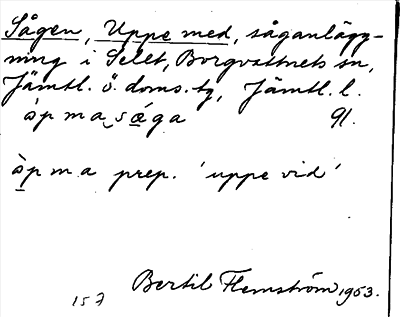 Sågen, Uppe med, såganlägg-
ning i Selet, Borgvattnets sn,
Jämtl. ö. doms. tg, Jämtl. l.
òp m a sǽga 91.
òp m a prep. 'uppe vid'
Bertil Flemström 1953.
157